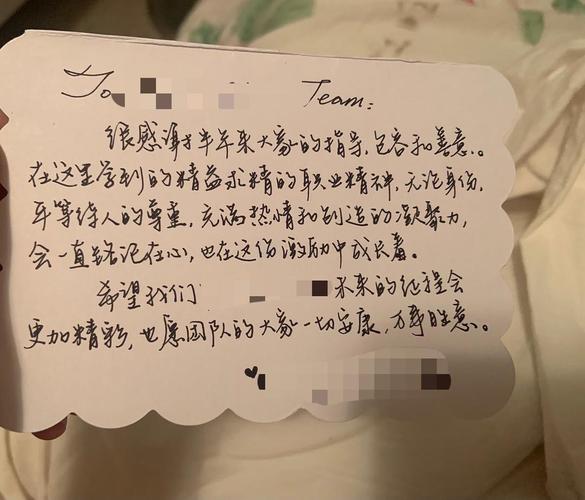 To Team:
很感谢半年来大家的指导,包容和善意。
在这里学到的精益求精的职业精神,无论身份,
平等待人的尊重,充满热情和创造的凝聚力,
会一直铭记在心,也在这份激励中成长着。
希望我们 未来的征程会
更加精彩,也愿团队的大家一切安康,万事胜意。